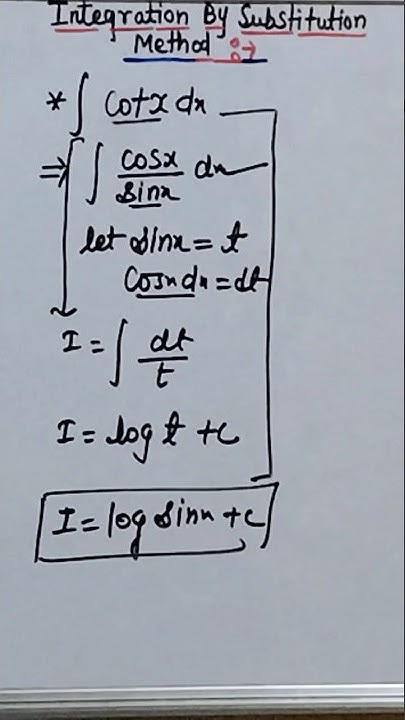 Integration By Substitution
Method :→
* ∫ Cotx dx
⇒ ∫ cosx/sinx dx
let sinx = t
Cosx dx = dt
I = ∫ dt/t
I = log t + c
I = log sinx + c